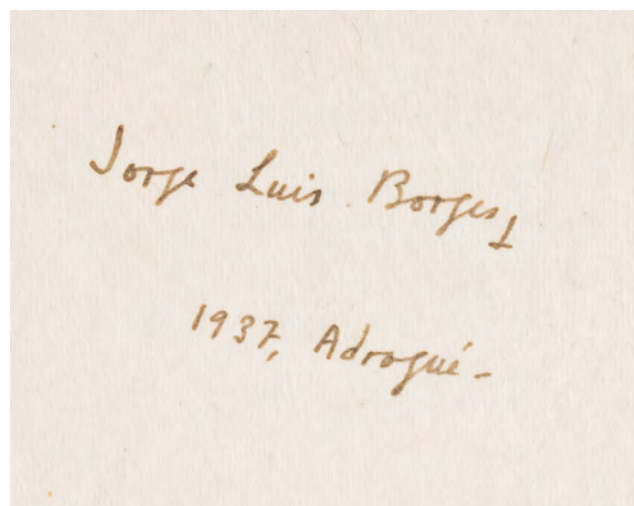 Jorge Luis Borges
1937, Adrogué-